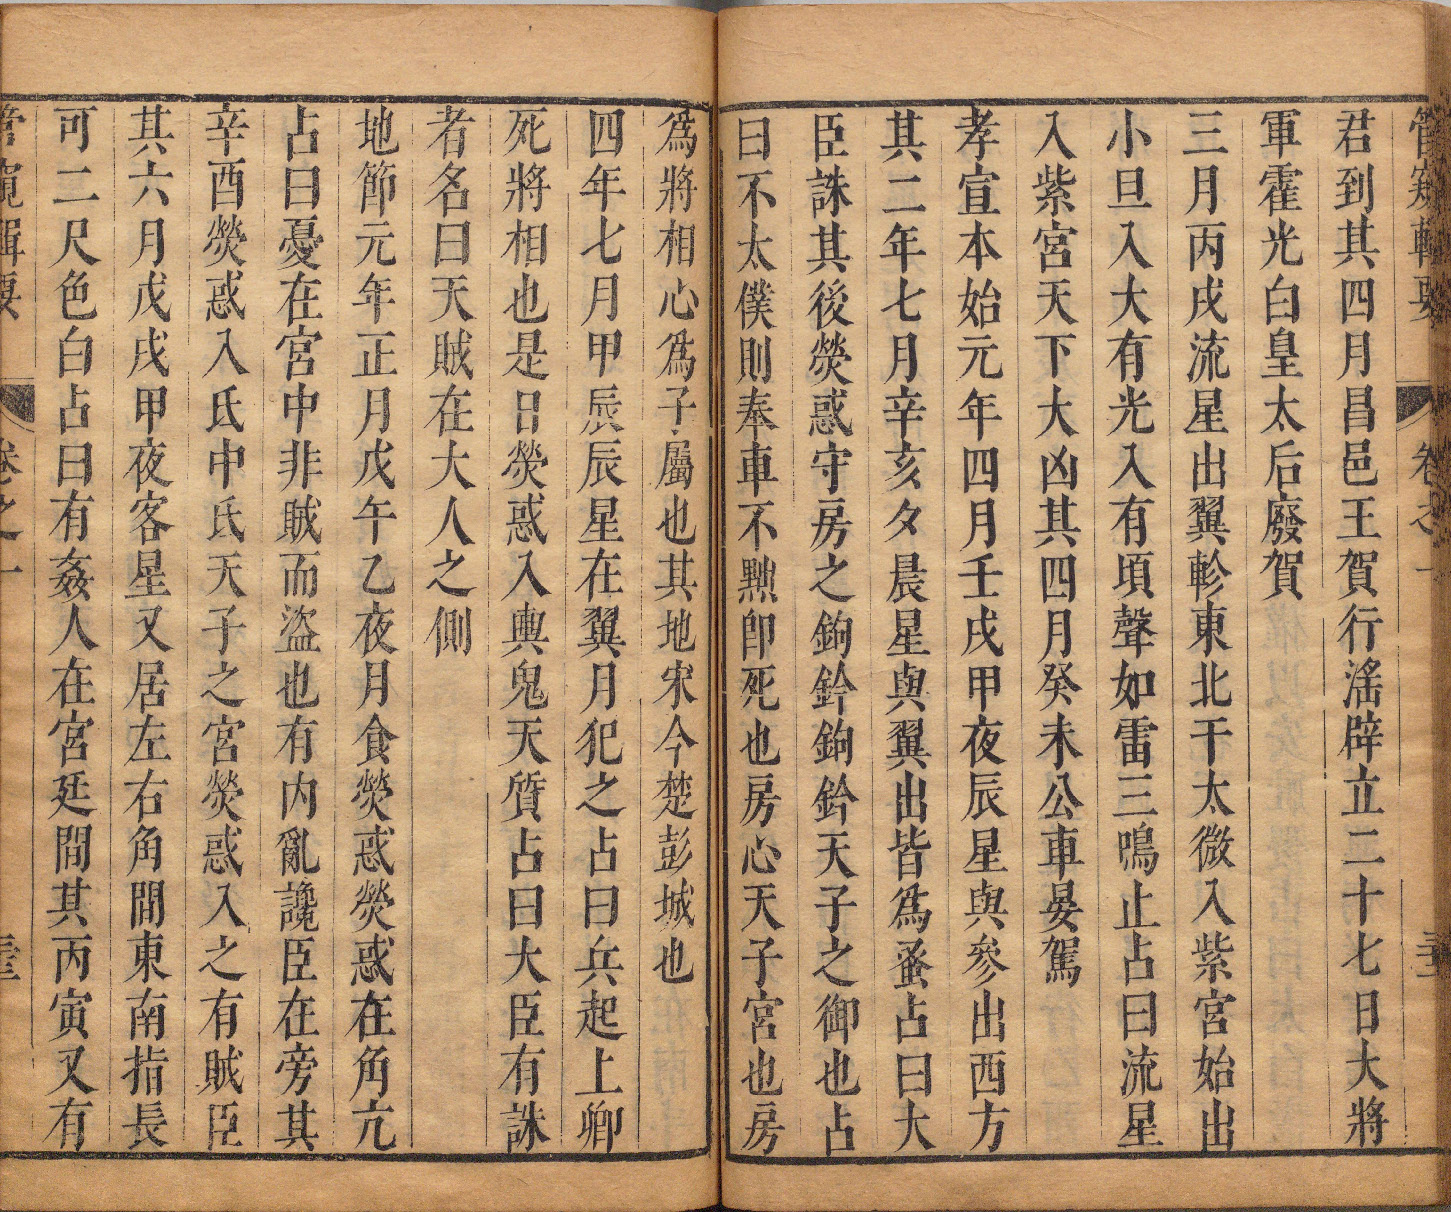 君到其四月昌邑王賀行滛辟立二十七日大將
軍霍光白皇太后廢賀
三月丙戌流星出翼軫東北干太微入紫宮始出
小旦入大有光入有頃聲如雷三鳴止占曰流星
入紫宮天下大凶其四月癸未公車晏駕
孝宣本始元年四月壬戌甲夜辰星與參出西方
其二年七月辛亥夕晨星與翼出皆爲蚤占曰大
臣誅其後熒惑守房之鉤鈐鉤鈐天子之御也占
曰不太僕則奉車不黜即死也房心天子宮也房
爲將相心爲子屬也其地宋今楚彭城也
四年七月甲辰辰星在翼月犯之占曰兵起上卿
死將相也是日熒惑入輿鬼天質占曰大臣有誅
者名曰天賊在大人之側
地節元年正月戊午乙夜月食熒惑熒惑在角亢
占曰憂在宮中非賊而盜也有内亂讒臣在旁其
辛酉熒惑入氐中氐天子之宮熒惑入之有賊臣
其六月戊戌甲夜客星又居左右角間東南指長
可二尺色白占曰有姦人在宮廷間其丙寅又有
管窺輯要 卷之一